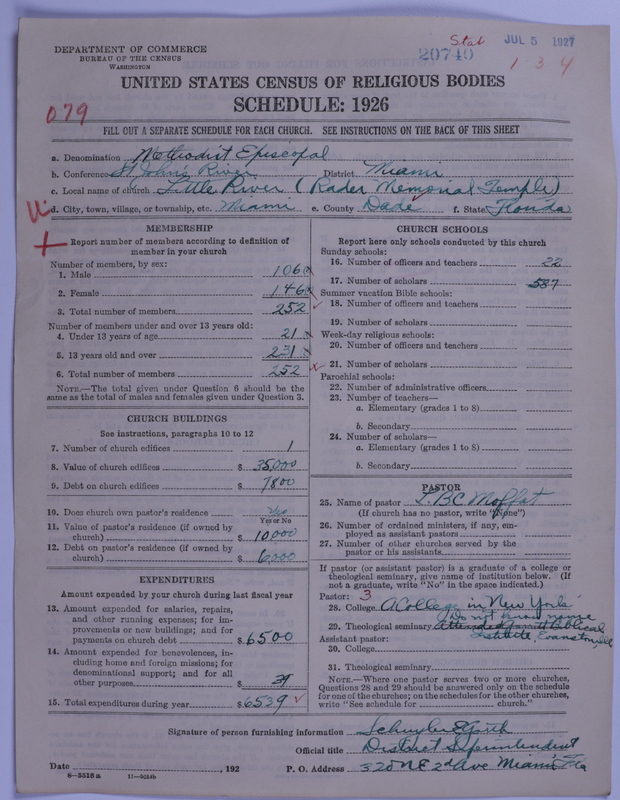 DEPARTMENT OF COMMERCE
BUREAU OF THE CENSUS
WASHINGTON
Stat
JUL 5 1927
20740
1 3 4
UNITED STATES CENSUS OF RELIGIOUS BODIES
SCHEDULE: 1926
079
FILL OUT A SEPARATE SCHEDULE FOR EACH CHURCH. SEE INSTRUCTIONS ON THE BACK OF THIS SHEET
a. Denomination Methodist Episcopal
b. Conference St John's River District Miami
c. Local name of church Little River (Rader Memorial Temple)
d. City, town, village, or township, etc. Miami e. County Dade f. State Florida
MEMBERSHIP
Report number of members according to definition of
member in your church
Number of members, by sex:
1. Male 106
2. Female 146
3. Total number of members 252
Number of members under and over 13 years old:
4. Under 13 years of age 21
5. 13 years old and over 231
6. Total number of members 252
NOTE.—The total given under Question 6 should be the
same as the total of males and females given under Question 3.
CHURCH BUILDINGS
See instructions, paragraphs 10 to 12
7. Number of church edifices 1
8. Value of church edifices $ 35,000
9. Debt on church edifices $ 7800
10. Does church own pastor's residence Yes
Yes or No
11. Value of pastor's residence (if owned by
church) $ 10,000
12. Debt on pastor's residence (if owned by
church) $ 6,000
EXPENDITURES
Amount expended by your church during last fiscal year
13. Amount expended for salaries, repairs,
and other running expenses; for im-
provements or new buildings; and for
payments on church debt $ 6500
14. Amount expended for benevolences, in-
cluding home and foreign missions; for
denominational support; and for all
other purposes $ 39
15. Total expenditures during year $ 6539
CHURCH SCHOOLS
Report here only schools conducted by this church
Sunday schools:
16. Number of officers and teachers 22
17. Number of scholars 587
Summer vacation Bible schools:
18. Number of officers and teachers
19. Number of scholars
Week-day religious schools:
20. Number of officers and teachers
21. Number of scholars
Parochial schools:
22. Number of administrative officers
23. Number of teachers—
a. Elementary (grades 1 to 8)
b. Secondary
24. Number of scholars—
a. Elementary (grades 1 to 8)
b. Secondary
PASTOR
25. Name of pastor L. B. C. Moffat
(If church has no pastor, write "None")
26. Number of ordained ministers, if any, em-
ployed as assistant pastors
27. Number of other churches served by the
pastor or his assistants
If pastor (or assistant pastor) is a graduate of a college or
theological seminary, give name of institution below. (If
not a graduate, write "No" in the space indicated.)
Pastor: 3
28. College A College in New York
Do not know name
29. Theological seminary attended Garrett Biblical
Assistant pastor: Institute, Evanston, Ill
30. College
31. Theological seminary
NOTE.—Where one pastor serves two or more churches,
Questions 28 and 29 should be answered only on the schedule
for one of the churches; on the schedules for the other churches,
write "See schedule for church."
Signature of person furnishing information Schuyler E
Official title District Superintendent
Date , 192 P. O. Address 320 NE 2nd Ave Miami Fla
8—5518 a 11—5024b